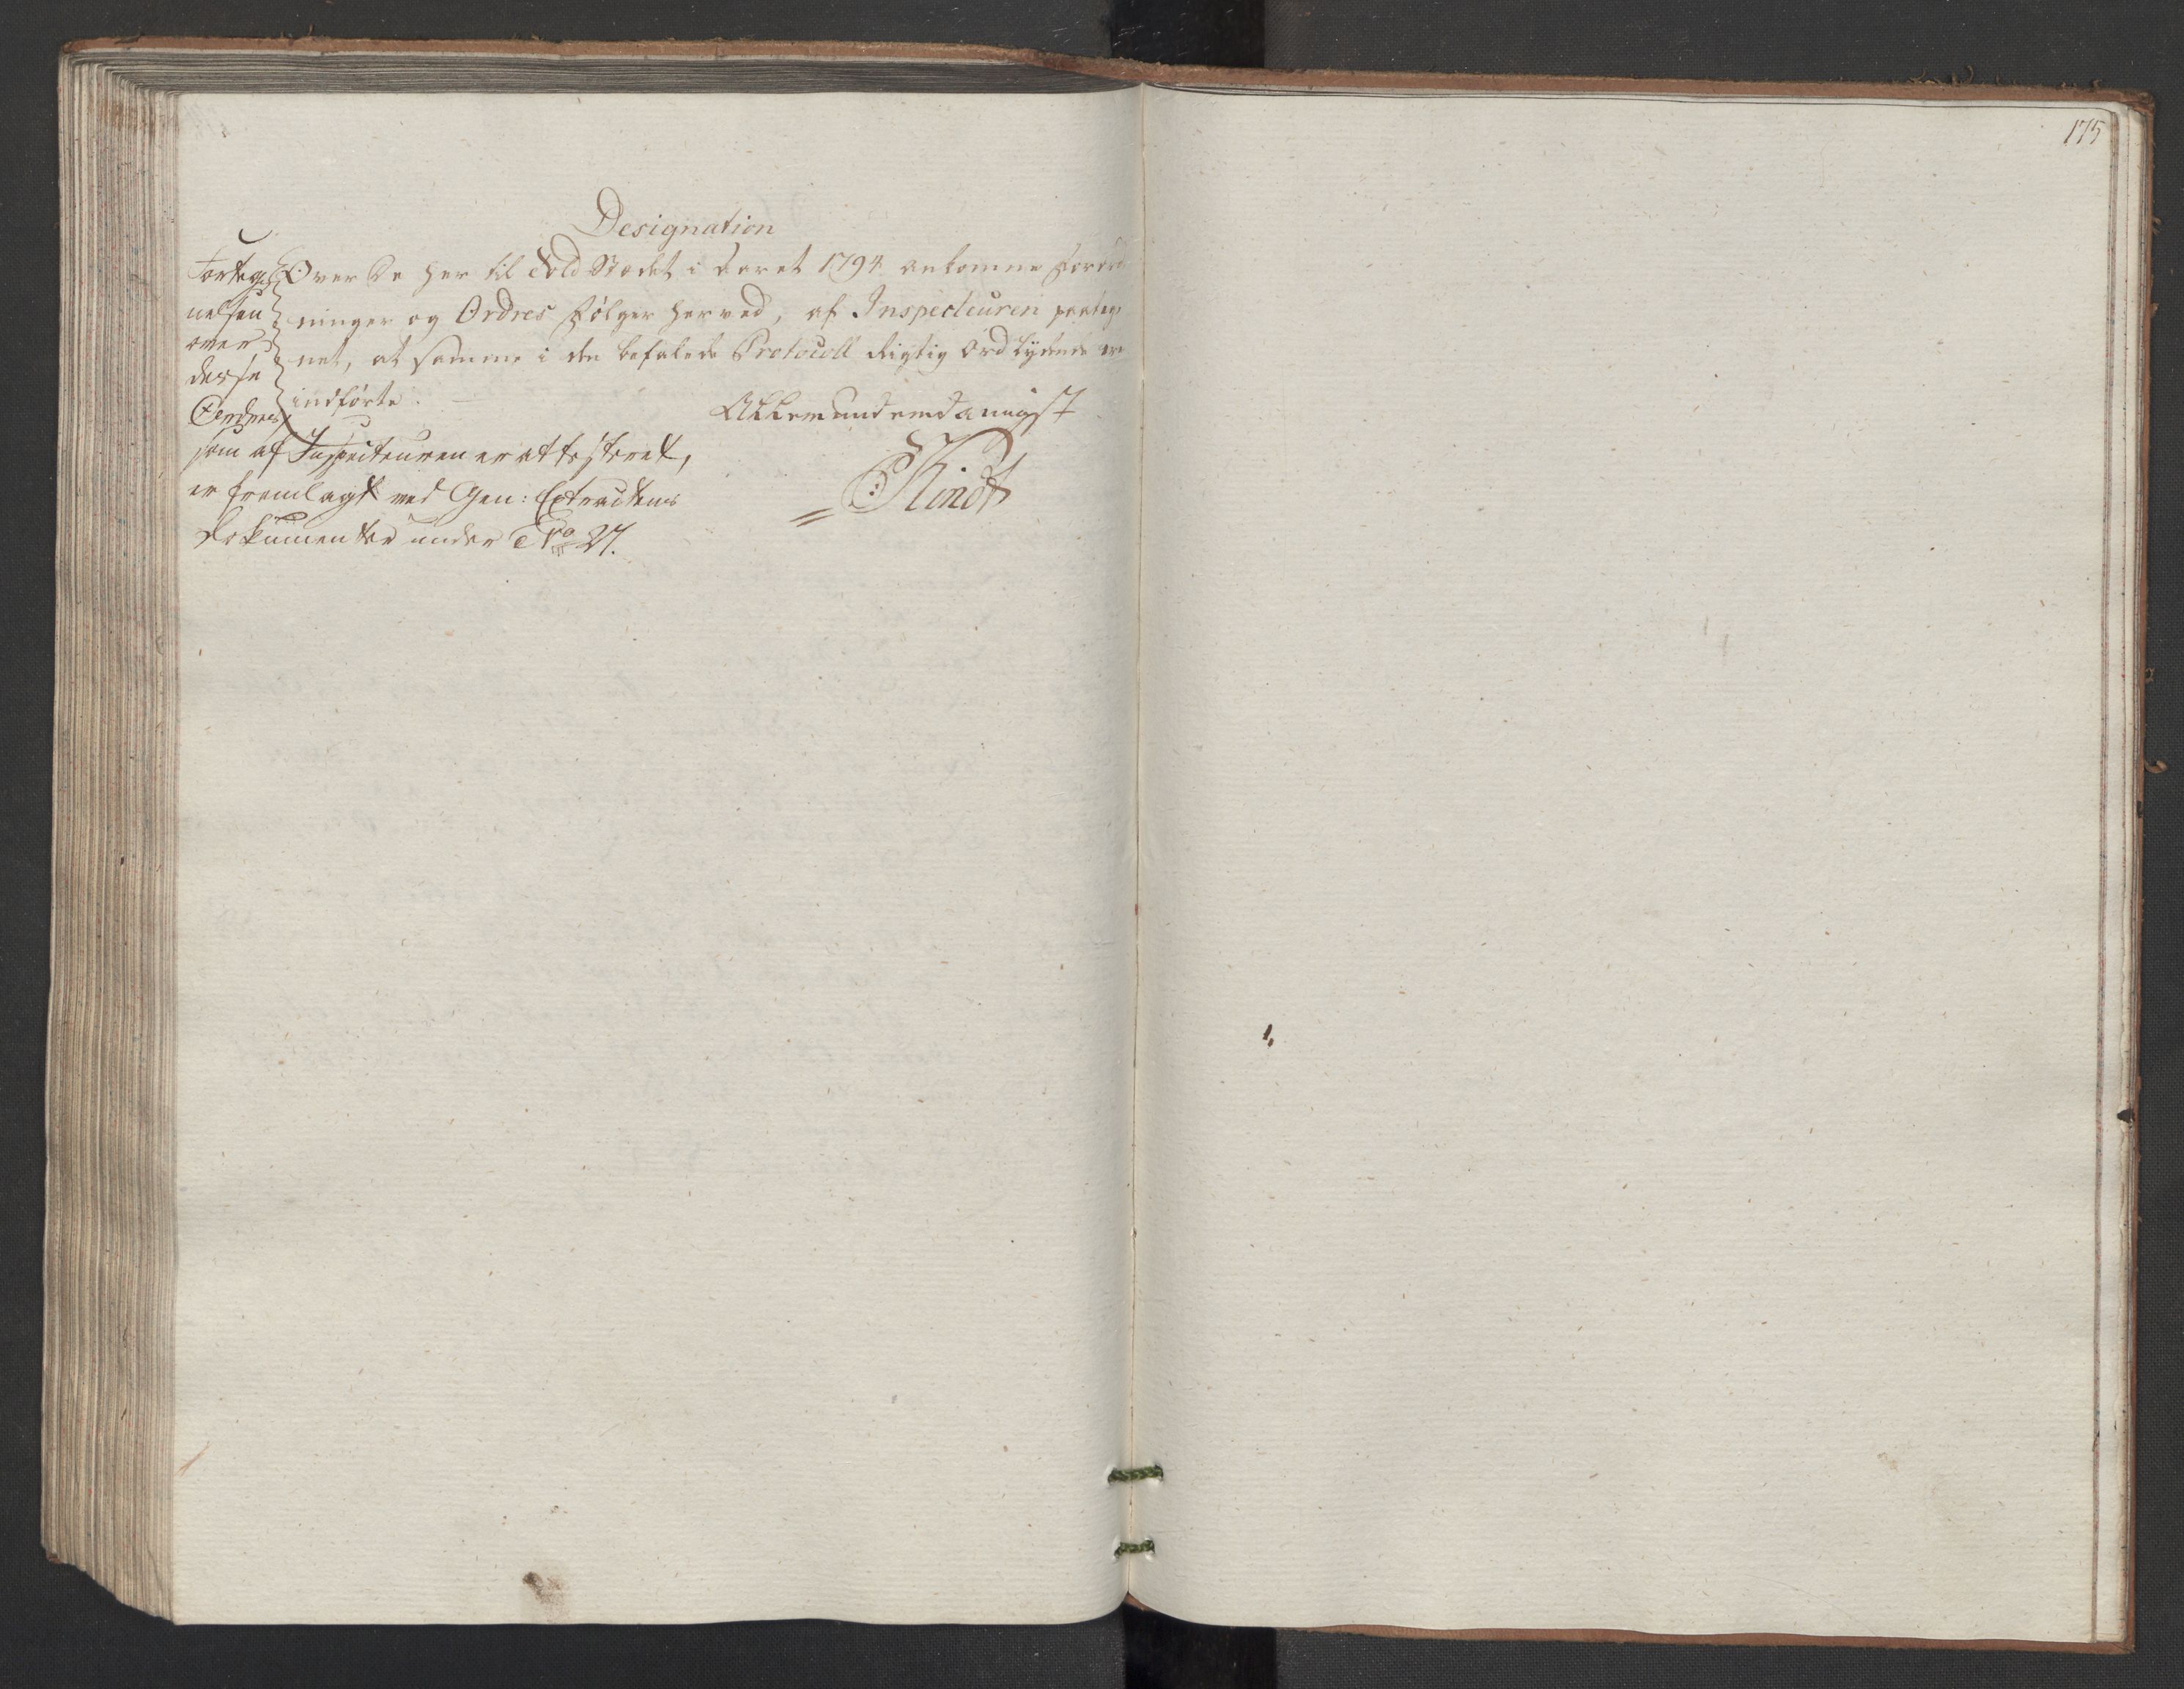 175
Designation
Over De her til Told Stædet i Aaret 1794 ankomne Forord
ninger og Ordres følger herved, af Inspecteuren paateg
net, at samme i den befalede Protocoll rigtig Ord lydende ere
indførte.
Allerunderdanigst
Kindt
Forteg-
nelsen
over
disse
Ordres
som af Inspecteuren er attesteret,
er fremlagt ved Gen: Extractens
Dokumenter under No 27.